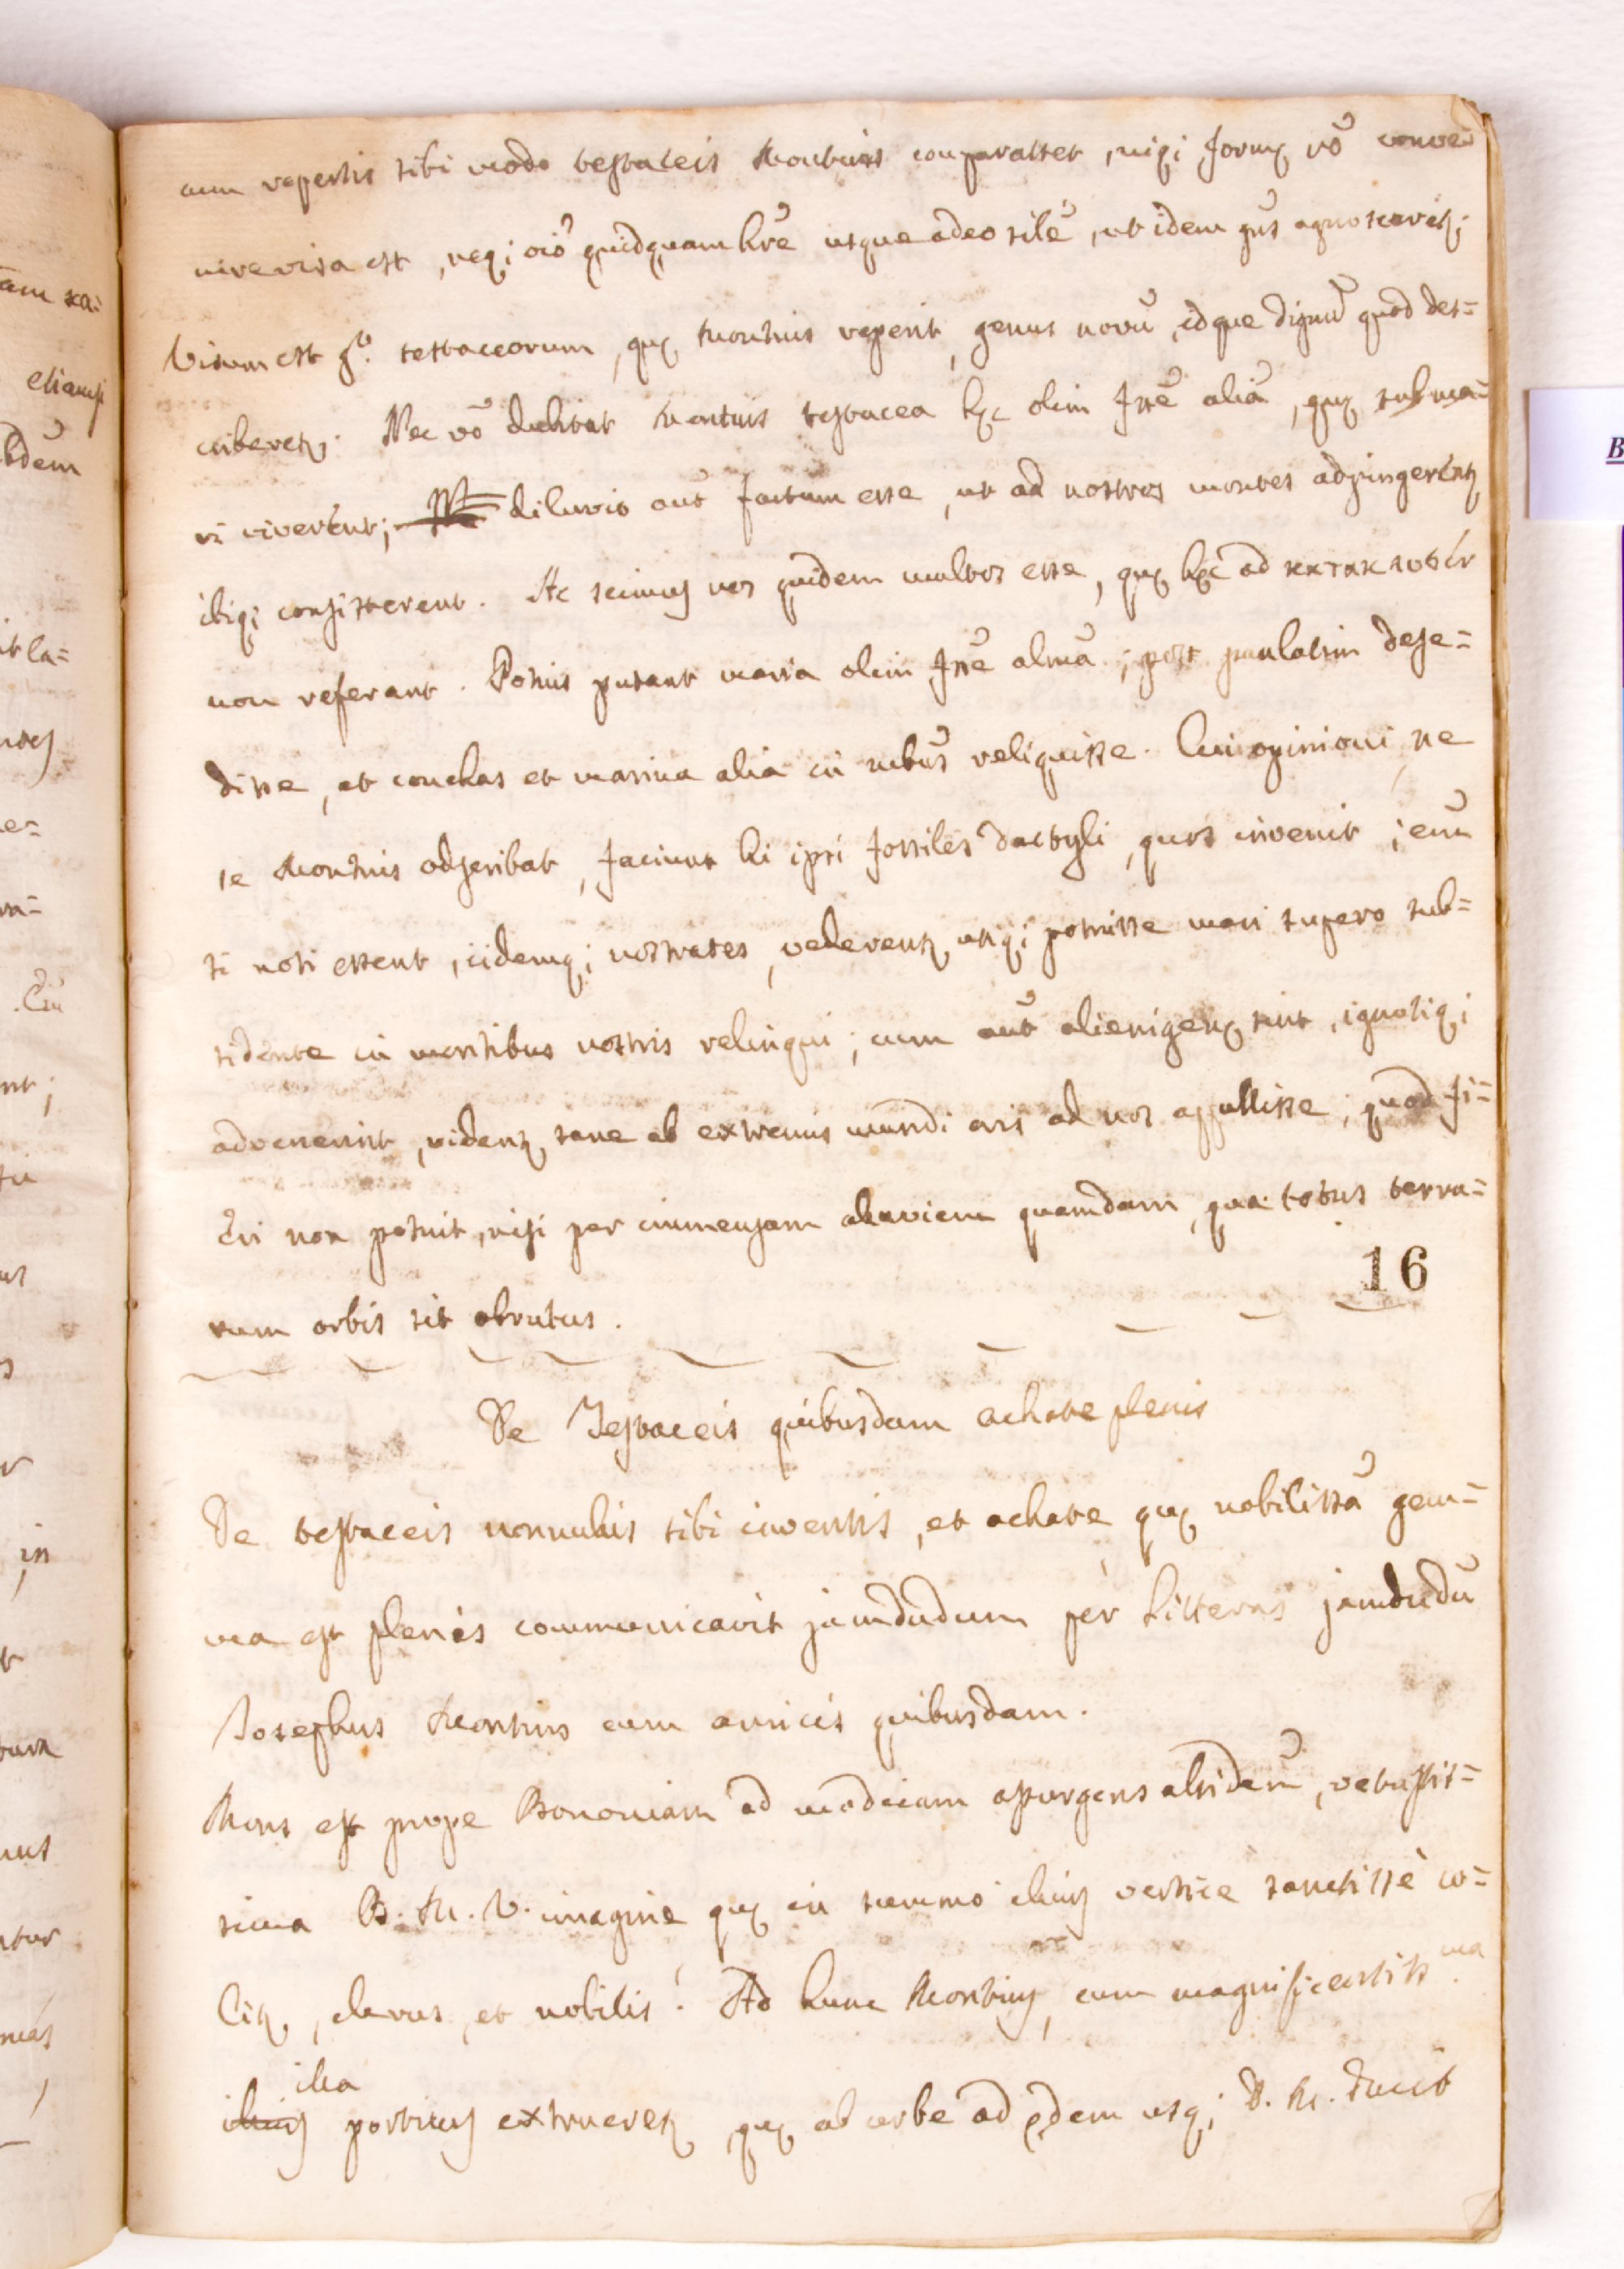 cum repertis sibi modo testaceis Montius comparasset, neq; formę rō conve-
nire visa est, neq; oīo quidquam hrē usque adeo silē, ut idem gūs agnosceretʒ;
Visum est g.º testaceorum, quę Montius reperit, genus novū, idque dignū quod des=
criberetʒ. Nec vō dubitat Montius testacea hęc olim fssē aliā, quę sub ma=
ri viverent; diluvio aūt factum esse, ut ad nostros montes adpingerentʒ
ibiq; consisterent. Ac scimus nos quidem multos esse, quę hęc ad κατακλυσμόν
non referant. Potius putant maria olim fssē altiōra; post paulatim dese=
disse, et conchas et marina alia in rebus reliquisse. Cui opinioni, ne
se Montius adscribat, faciunt hi ipsi fossiles dactyli, quos invenit; cum
si noti essent, iidemq; nostrates, viderentʒ utiq; potuisse mari supero sub=
sidente in montibus nostris relinqui; cum aūt alienigenę sint, ignotiq;
advenerint, videntʒ sane ab extremis mundi oris ad nos appulisse; quod fi=
eri non potuit, nisi per immensam alluviem quamdam, qua totus terra=
rum orbis sit obrutus.
16
De Testaceis quibusdam achate plenis
De testaceis nonnullis sibi inventis, et achate, quę nobilissā gem=
ma est plenis communicavit jamdudum per litteras jamdudū
Josephus Montius cum amicis quibusdam.
Mons est prope Bononiam ad modicam assurgens altidēm, vetustis=
sima B. M. V. imagine quę in summo illius vertice sanctissē co=
litʒ, clarus, et nobilis. Ad hunc Montius, cum magnificentiss.ma
illius illa porticus extrueretʒ, quę ab urbe ad ędem usq; D. M. ducit